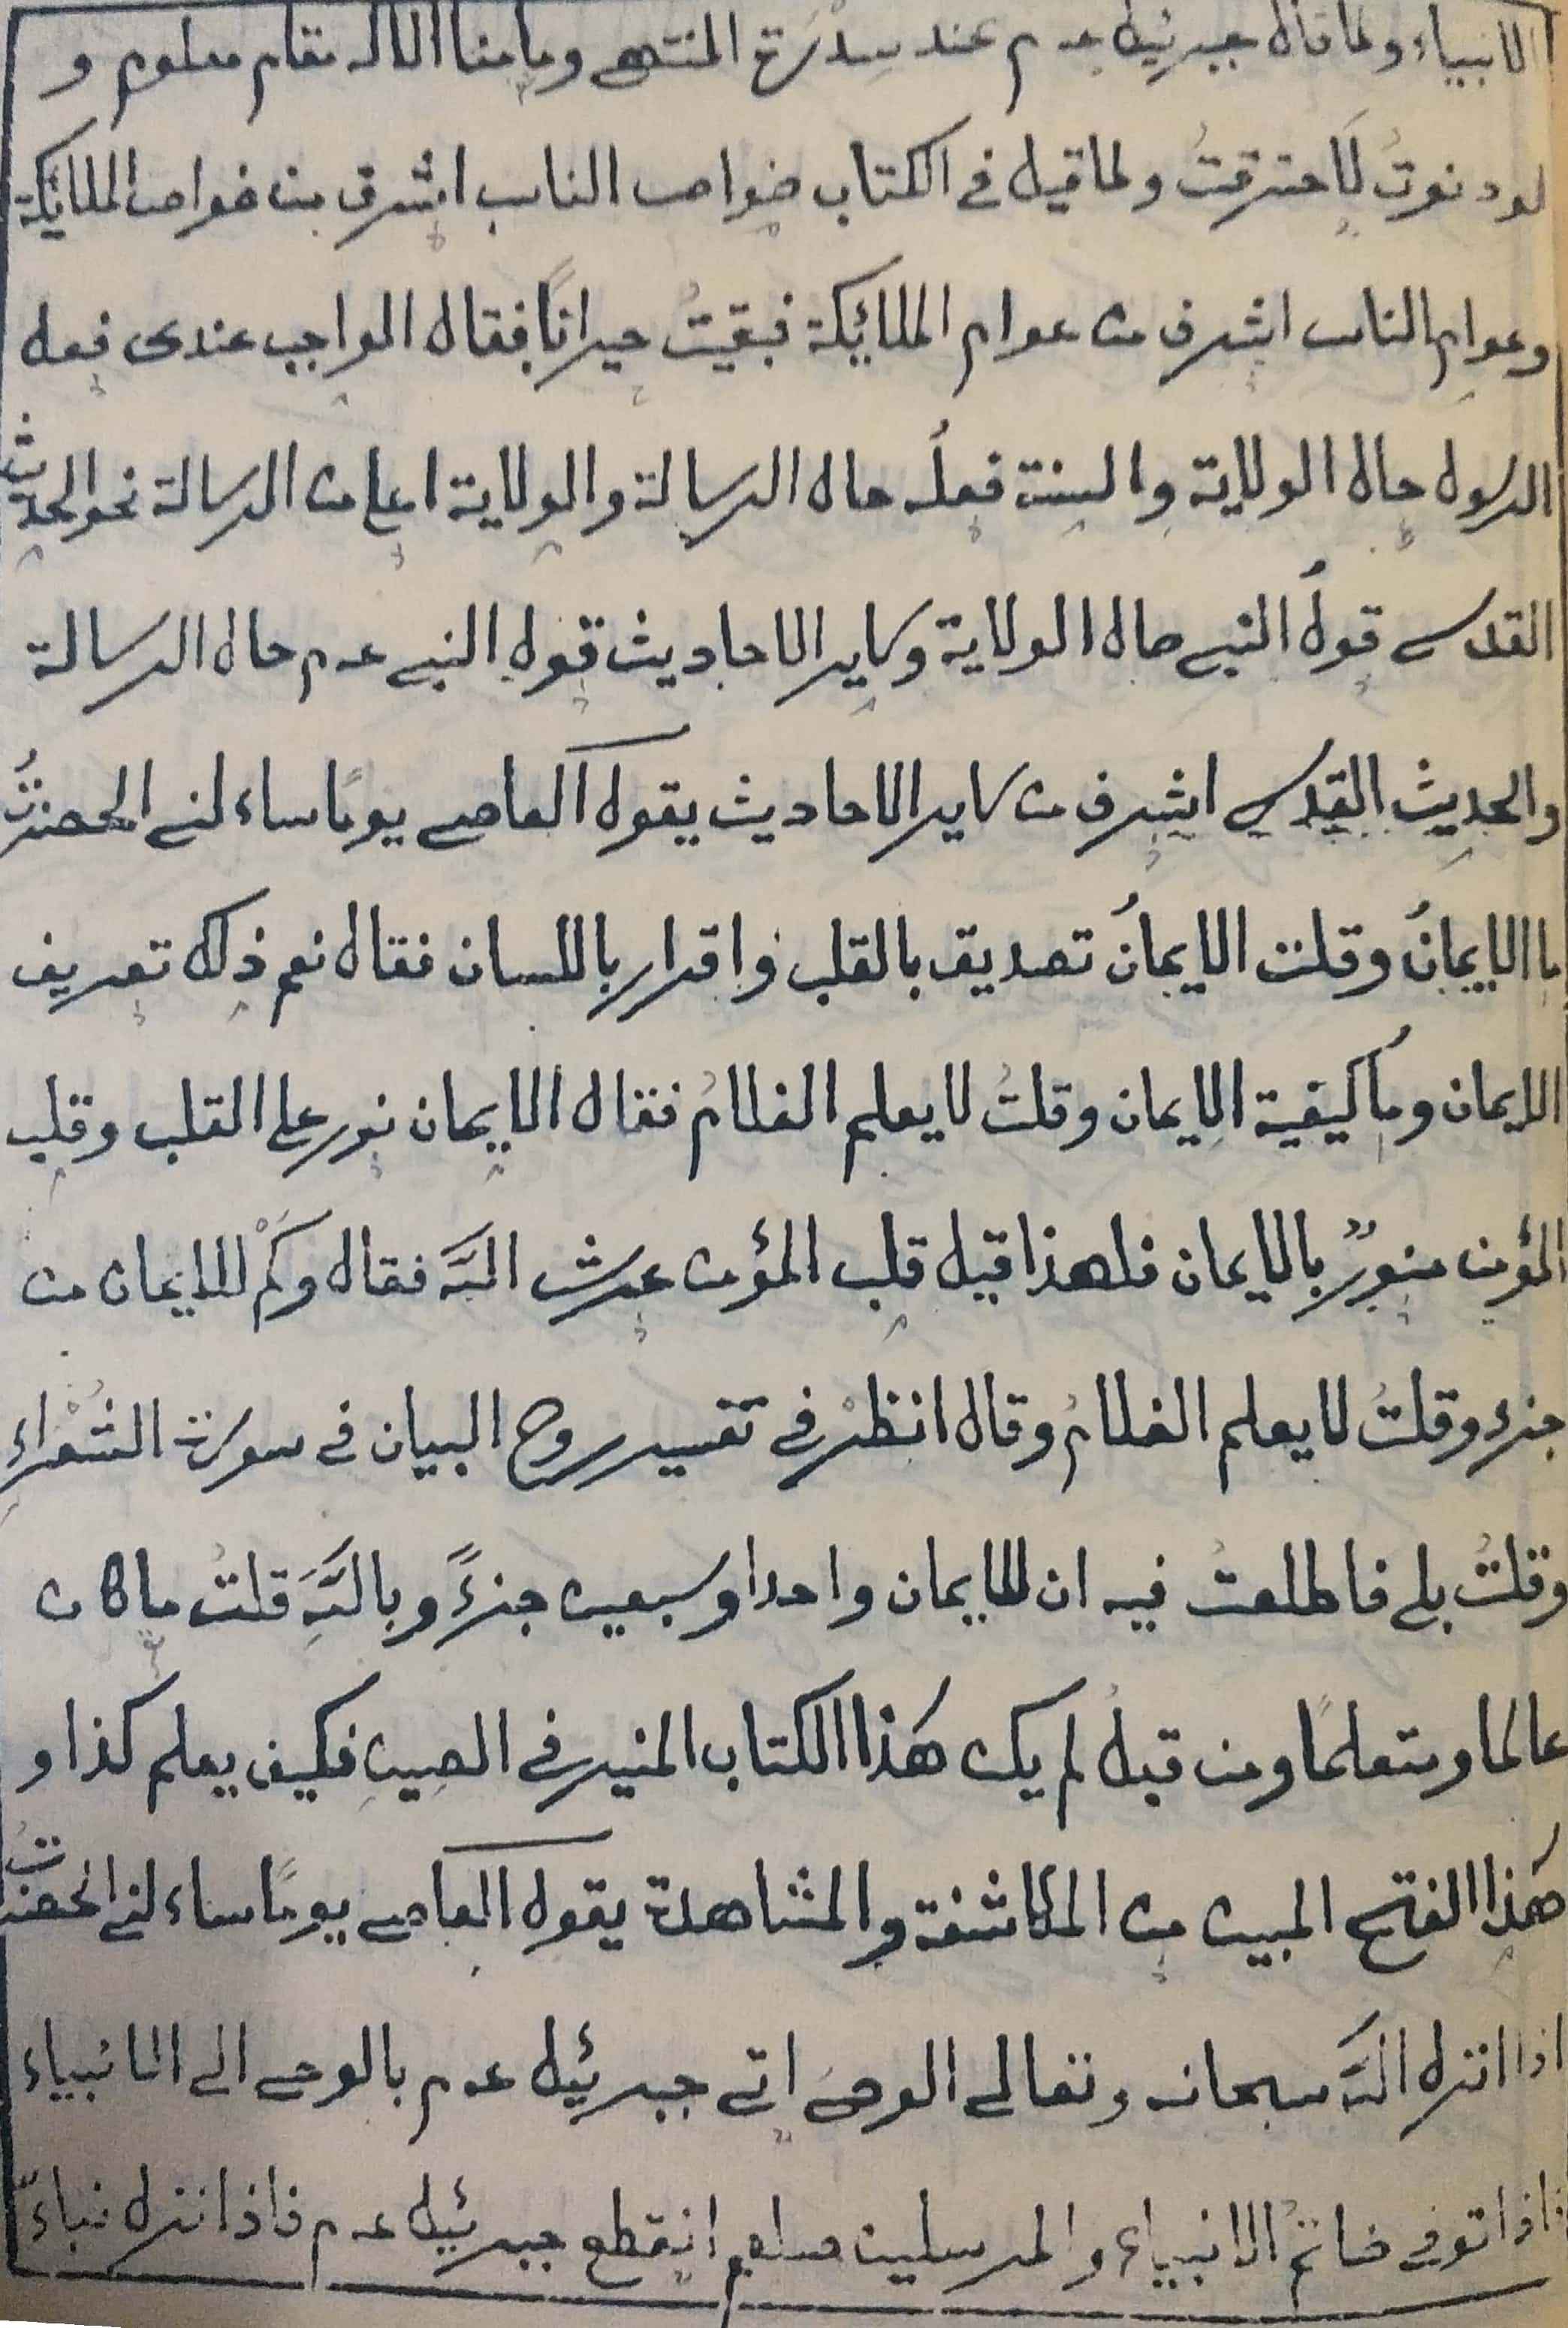 الانبياء ولما قال جبرئيل ع م عند سِدْرَة المنتهى وما منا الا له مقام معلوم و
لو دنوتُ لَاحترقتُ ولما قيل فى الكتاب خواص الناس اشرف من خواص الملائكة
وعوام الناس اشرف من عوام الملائكة فبقيتُ حيرانًا فقال الواجب عندى فعل
الرسول حال الولاية والسنة فعلُه حال الرسالة والولاية اعلى من الرسالة نحو الحديث
القدسى قولُ النبى حال الولاية وساير الاحاديث قول النبى ع م حال الرسالة
والحديث القدسى اشرف من ساير الاحاديث يقول العاصى يومًا ساءلنى الحضرتُ
ما الايمانُ وقلت الايمانُ تصديق بالقلب واقرار باللسان فقال نعم ذلك تعريف
الايمان وما كيفية الايمان وقلتُ لا يعلم الغلامُ فقال الايمان نور على القلب وقلب
المؤمن منورٌ بالايمان فلهذا قيل قلب المؤمن عرش اللّه فقال وكَمْ للايمان من
جزء وقلتُ لا يعلم الغلامُ وقال انظرْ فى تفسير روح البيان فى سورة الشُعَراءِ
وقلتُ بلى فاطلعتُ فيه ان للايمان واحدا وسبعين جزءً وباللّهِ قلتُ ما كان
عالما ومتعلمًا ومن قبلُ لم يكن هَذا الكتاب المنير فى الصينِ فكيف يعلم كذا و
هَذا الفتح المبين من المكاشفة والمشاهدة يقول العاصى يومًا ساءلنى الحضرتُ
اذا انزل اللّه سبحانه وتعالى الوحىَ اتى جبرئيل ع م بالوحى الى الانبياء
فاذا توفى خاتمُ الانبياء والمرسلين صلعم انقطع جبرئيل ع م فاذا نزل نباءٌ